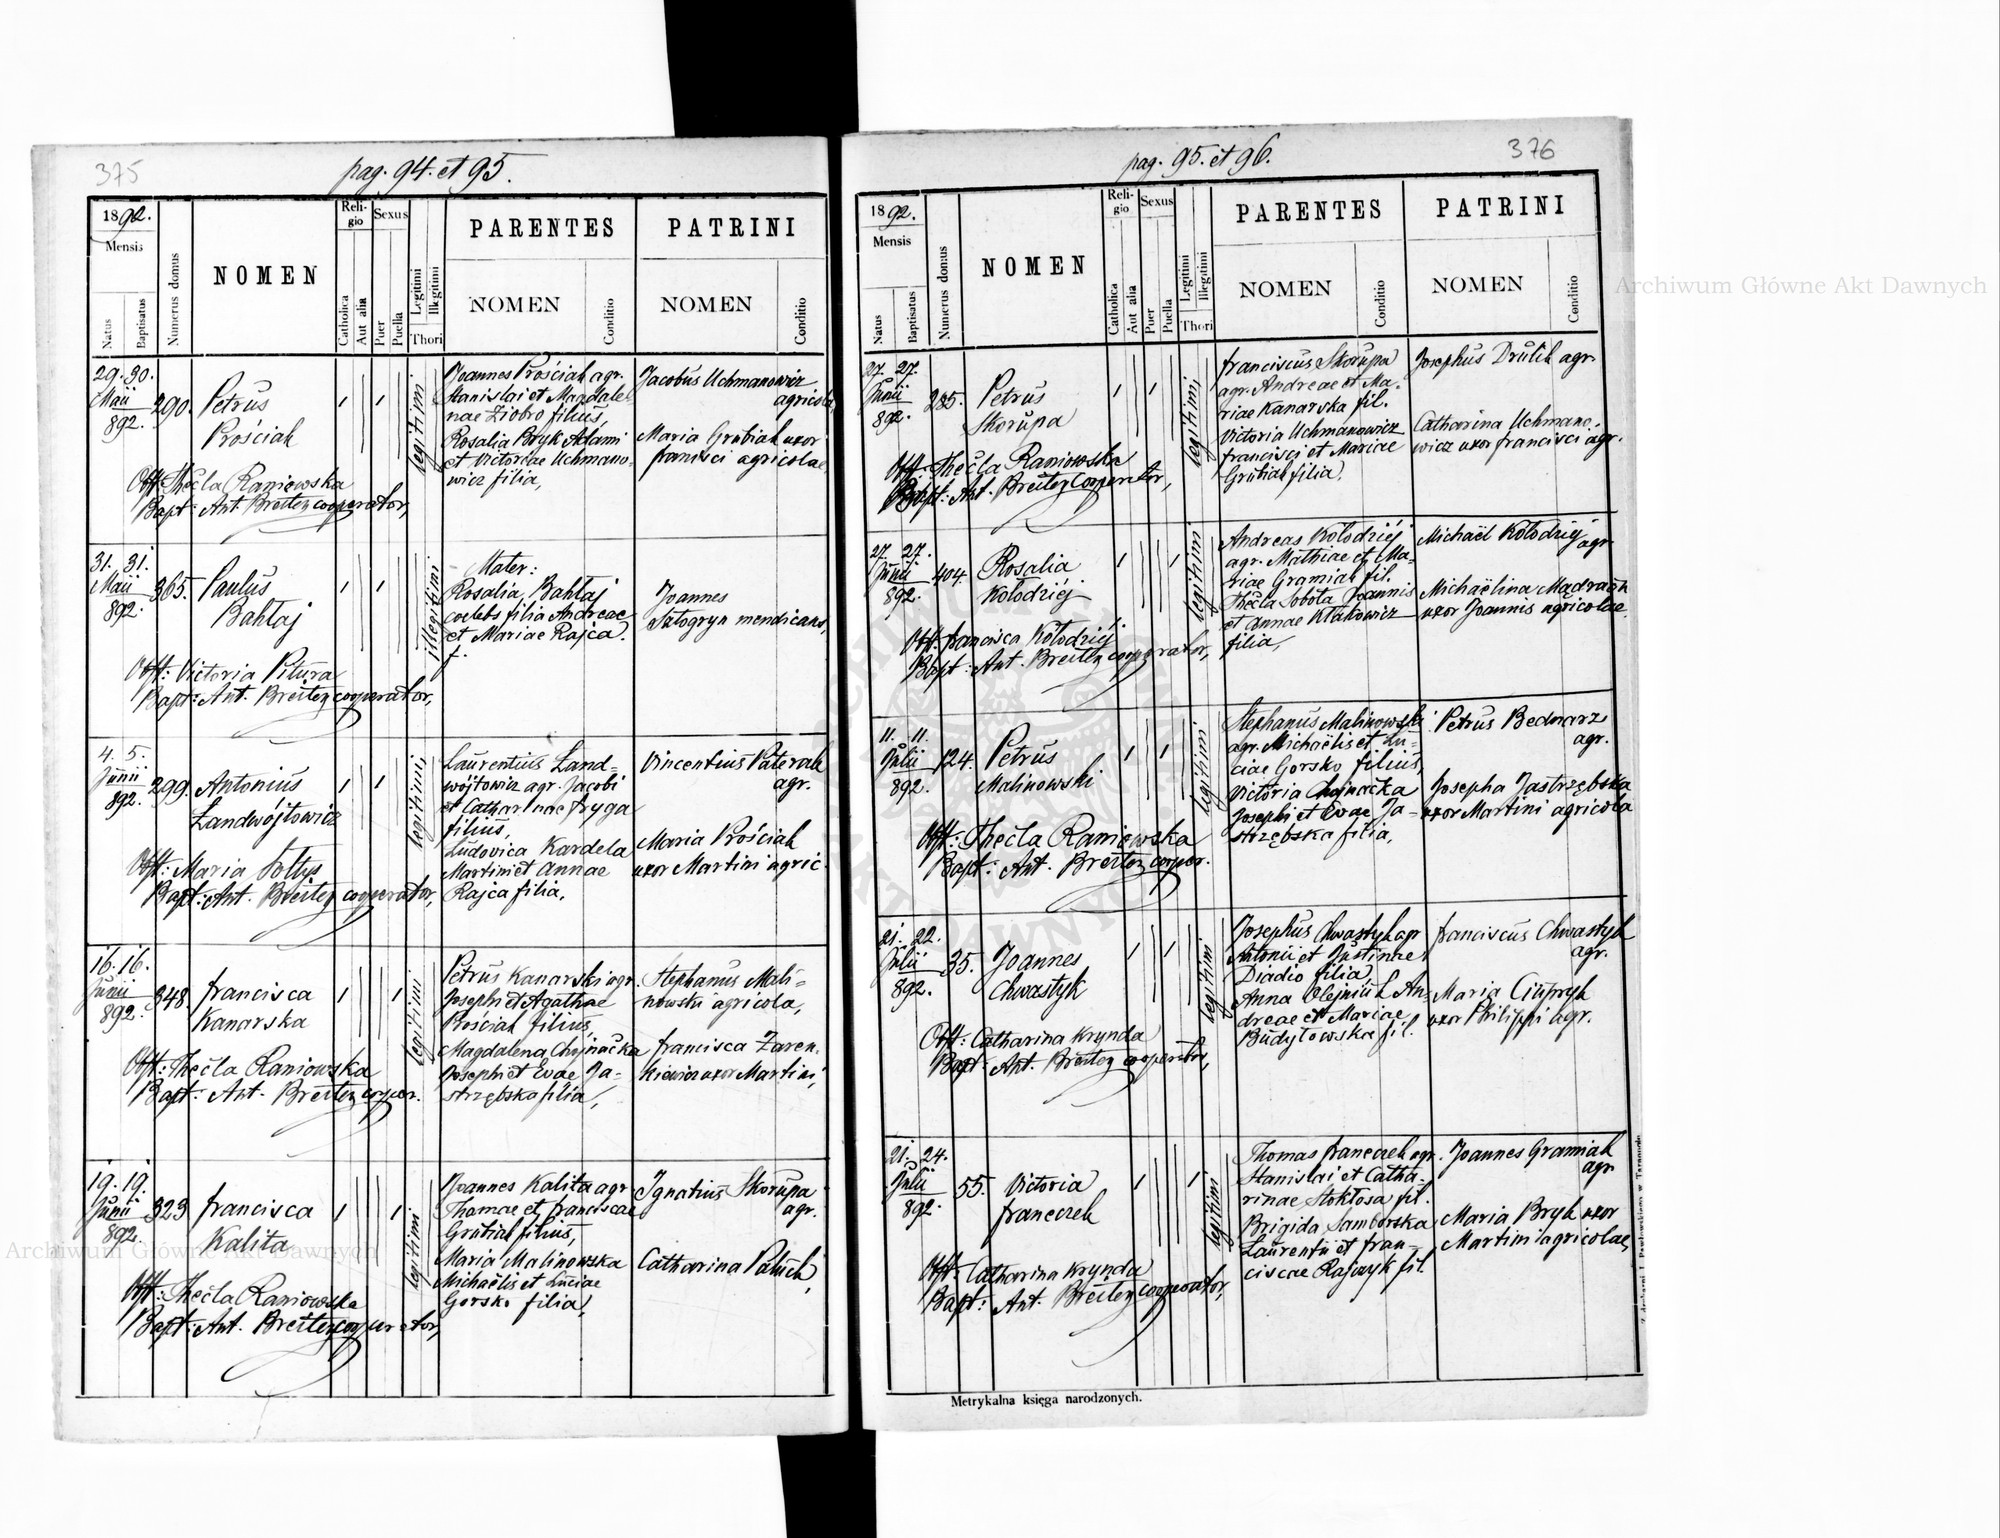 375
pag. 94. et 95.
1892.
Mensis
Natus
Baptisatus
Numerus domus
NOMEN
Reli-
gio
Catholica
Aut alia
Sexus
Puer
Puella
Legitimi
Illegitimi
Thori
PARENTES
NOMEN
Conditio
PATRINI
NOMEN
Conditio
29. 30.
Maii
892.
290.
Petrus
Prościak
legitimi
Joannes Prościak agr.
Stanislai et Magdale-
nae Ziobro filius,
Rosalia Bryk Adami
et Victoriae Uchmano-
wicz filia,
Jacobus Uchmanowicz
agricola
Maria Grabiak uxor
francisci agricolae
Obst: Thecla Raniowska
Bapt: Ant. Breitez cooperator,
31. 31.
Maii
892.
365.
Paulus
Bahtaj
illegitimi
Mater:
Rosalia Bahtaj
coelebs filia Andreae
et Mariae Rajca.
f.
Joannes
Satogryn mendicans,
Obst: Victoria Pitura
Bapt: Ant. Breitez cooperator,
4. 5.
Junii
892.
299.
Antonius
Landwójtowicz
legitimi
Laurentius Land-
wójtowicz agr. Jacobi
et Catharinae fryga
filius,
Ludovica Kardela
Martini et Annae
Rajca filia,
Vincentius Paterak
agr.
Maria Prościak
uxor Martini agric.
Obst: Maria Sołtys
Bapt: Ant. Breitez cooperator,
16. 16.
Junii
892.
348.
francisca
Kanarska
legitimi
Petrus Kanarski agr.
Josephi et Agathae
Prościak filius,
Magdalena Chojnačka
Josephi et Evae Ja-
strzębska filia,
Stephanus Mali-
nowski agricola,
francisca Zaren-
kiewicz uxor Martini,
Obst: Thecla Raniowska
Bapt: Ant. Breitez cooper.
19. 19.
Junii
892.
323
francisca
Kalita
legitimi
Joannes Kalita agr
Thomae et franciscae
Grabiak filius,
Maria Malinowska
Michaëlis et Luciae
Gorsko filia,
Ignatius Skorupa
agr.
Catharina Paluch,
Obst: Thecla Raniowska
Bapt: Ant. Breitez cooperator,
376
pag. 95. et 96.
1892.
Mensis
Natus
Baptisatus
Numerus domus
NOMEN
Reli-
gio
Catholica
Aut alia
Sexus
Puer
Puella
Legitimi
Illegitimi
Thori
PARENTES
NOMEN
Conditio
PATRINI
NOMEN
Conditio
27. 27.
Junii
892.
285.
Petrus
Skorupa
legitimi
franciscus Skorupa
agr. Andreae et Ma-
riae Kanarska fil.
Victoria Uchmanowicz
francisci et Mariae
Grabiak filia,
Josephus Drulik agr.
Catharina Uchmano-
wicz uxor francisci agr.
Obst: Thecla Raniowska
Bapt: Ant. Breitez cooperator,
27. 27.
Junii
892.
404.
Rosalia
Kołodziéj
legitimi
Andreas Kołodziéj
agr. Mathiae et Ma-
riae Gramiak fil.
Thecla Sobota Joannis
et Annae Kłakowicz
filia,
Michaël Kołodziéj agr.
Michaëlina Mądrach
uxor Joannis agricolae
Obst. francisca Kołodziéj
Bapt: Ant. Breitez cooperator,
11. 11.
Julii
892.
124.
Petrus
Malinowski
legitimi
Stephanus Malinowski
agr. Michaëlis et Lu-
ciae Gorsko filius,
Victoria Chojnačka
Josephi et Evae Ja-
strzębska filia,
Petrus Bednarz
agr.
Josepha Jastrzębska
uxor Martini agricola
Obst: Thecla Raniowska
Bapt: Ant. Breitez cooper.
21. 22.
Julii
892.
35.
Joannes
Chwastyk
legitimi
Josephus Chwastyk agr
Antonii et Justinae
Diadio filia
Anna Olejniuk An-
dreae et Mariae
Budyłowska fil.
franciscus Chwastyk
agr.
Maria Ciupryk
uxor Philippi agr.
Obst: Catharina Krynda
Bapt: Ant. Breitez cooperator,
21. 24.
Julii
892.
55.
Victoria
franczek
legitimi
Thomas franczek agr.
Stanislai et Catha-
rinae Stokłosa fil.
Brigida Samborska
Laurentii et fran-
ciscae Rajczyk fil.
Joannes Gramiak
agr
Maria Bryk uxor
Martini agricolae,
Obst: Catharina Krynda
Bapt: Ant. Breitez cooperator,
Metrykalna księga narodzonych.
Z drukarni J. Pawłowskiego w Tarnopolu.
Archiwum Główne Akt Dawnych
Archiwum Główne Akt Dawnych